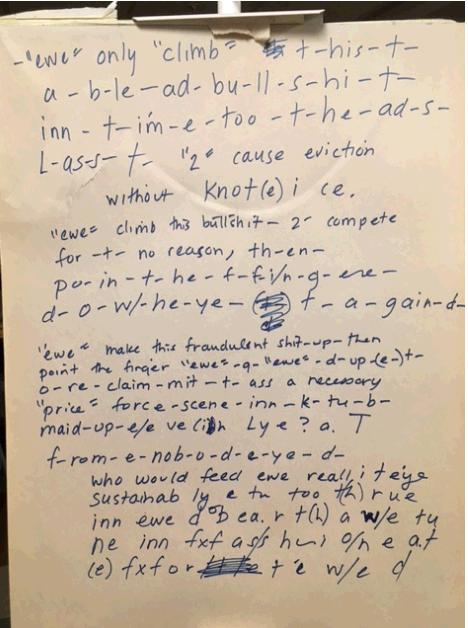 -"ewe" only "climb" t-his-t-
a-b-le-ad-bu-ll-s-hi-t-
inn-t-im-e-too-t-he-ad-s-
L-ass-t- "2" cause eviction
without Knot(e)i ce.
"ewe" climb this bullshit-2-compete
for -t- no reason, th-en-
po-in-t-he-f-fi/n-g-ere-
d-o-w/-he-ye- t-a-gain-d-
"ewe" make this fraudulent shit-up-then
point the finger "ewe"-q-"ewe"-d-up-(e-)t-
o-re-claim-mit-t-ass a necessary
"price" force-scene-inn-k-tu-b-
maid-up-e/e Lye? a. T
f-rom-e-nob-o-d-e-ye-d-
who would feed ewe reall i t eye
sustainab ly e tu too (h) rue
inn ewe d o B ea. r t(h) a w/e tu
ne inn fxf ass hu o/n e a.t
(e) fxf o r t e w/e d